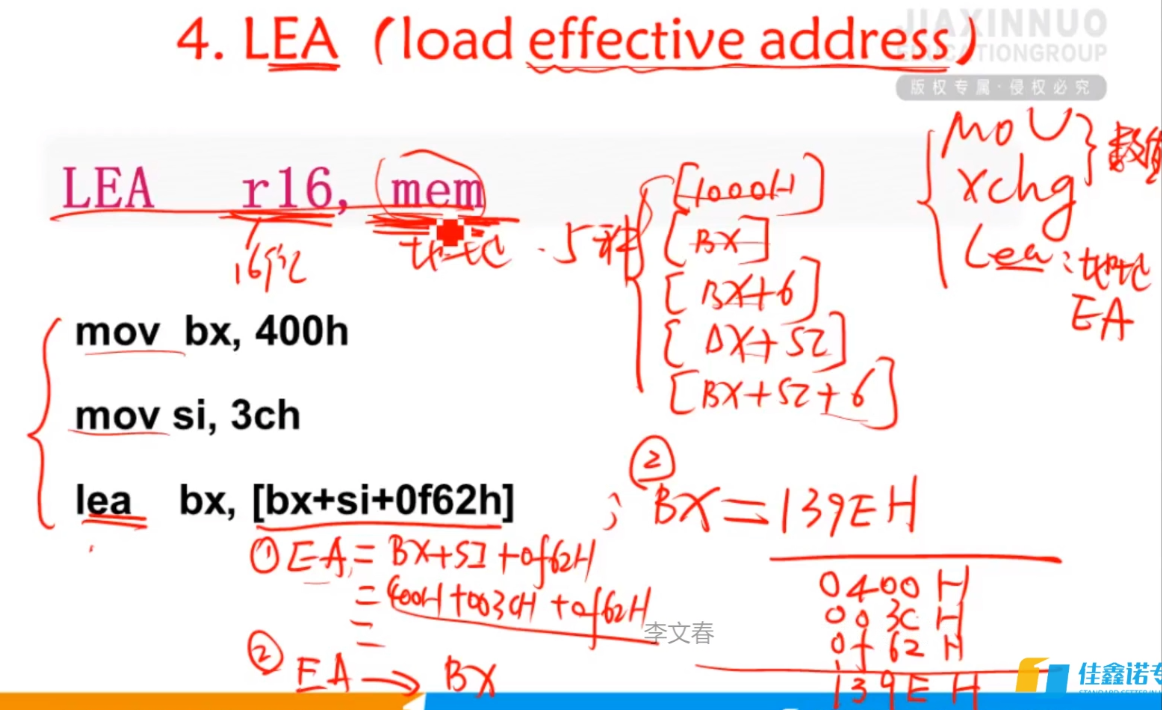 4. LEA (load effective address)
JIAXINNUO
EDUCATIONGROUP
版权专属·侵权必究
LEA r16, mem
16位
地址 . 5种
[1000H]
[BX]
[BX+6]
[BX+SI]
[BX+SI+6]
MOV
xchg
数值
Lea: 地址
EA
mov bx, 400h
mov si, 3ch
lea bx, [bx+si+0f62h]
; ② BX=139EH
① EA = BX+SI+0f62H
= 400H+003CH+0f62H
=
② EA → BX
0400 H
003C H
0f62 H
139E H
李文春
佳鑫诺专